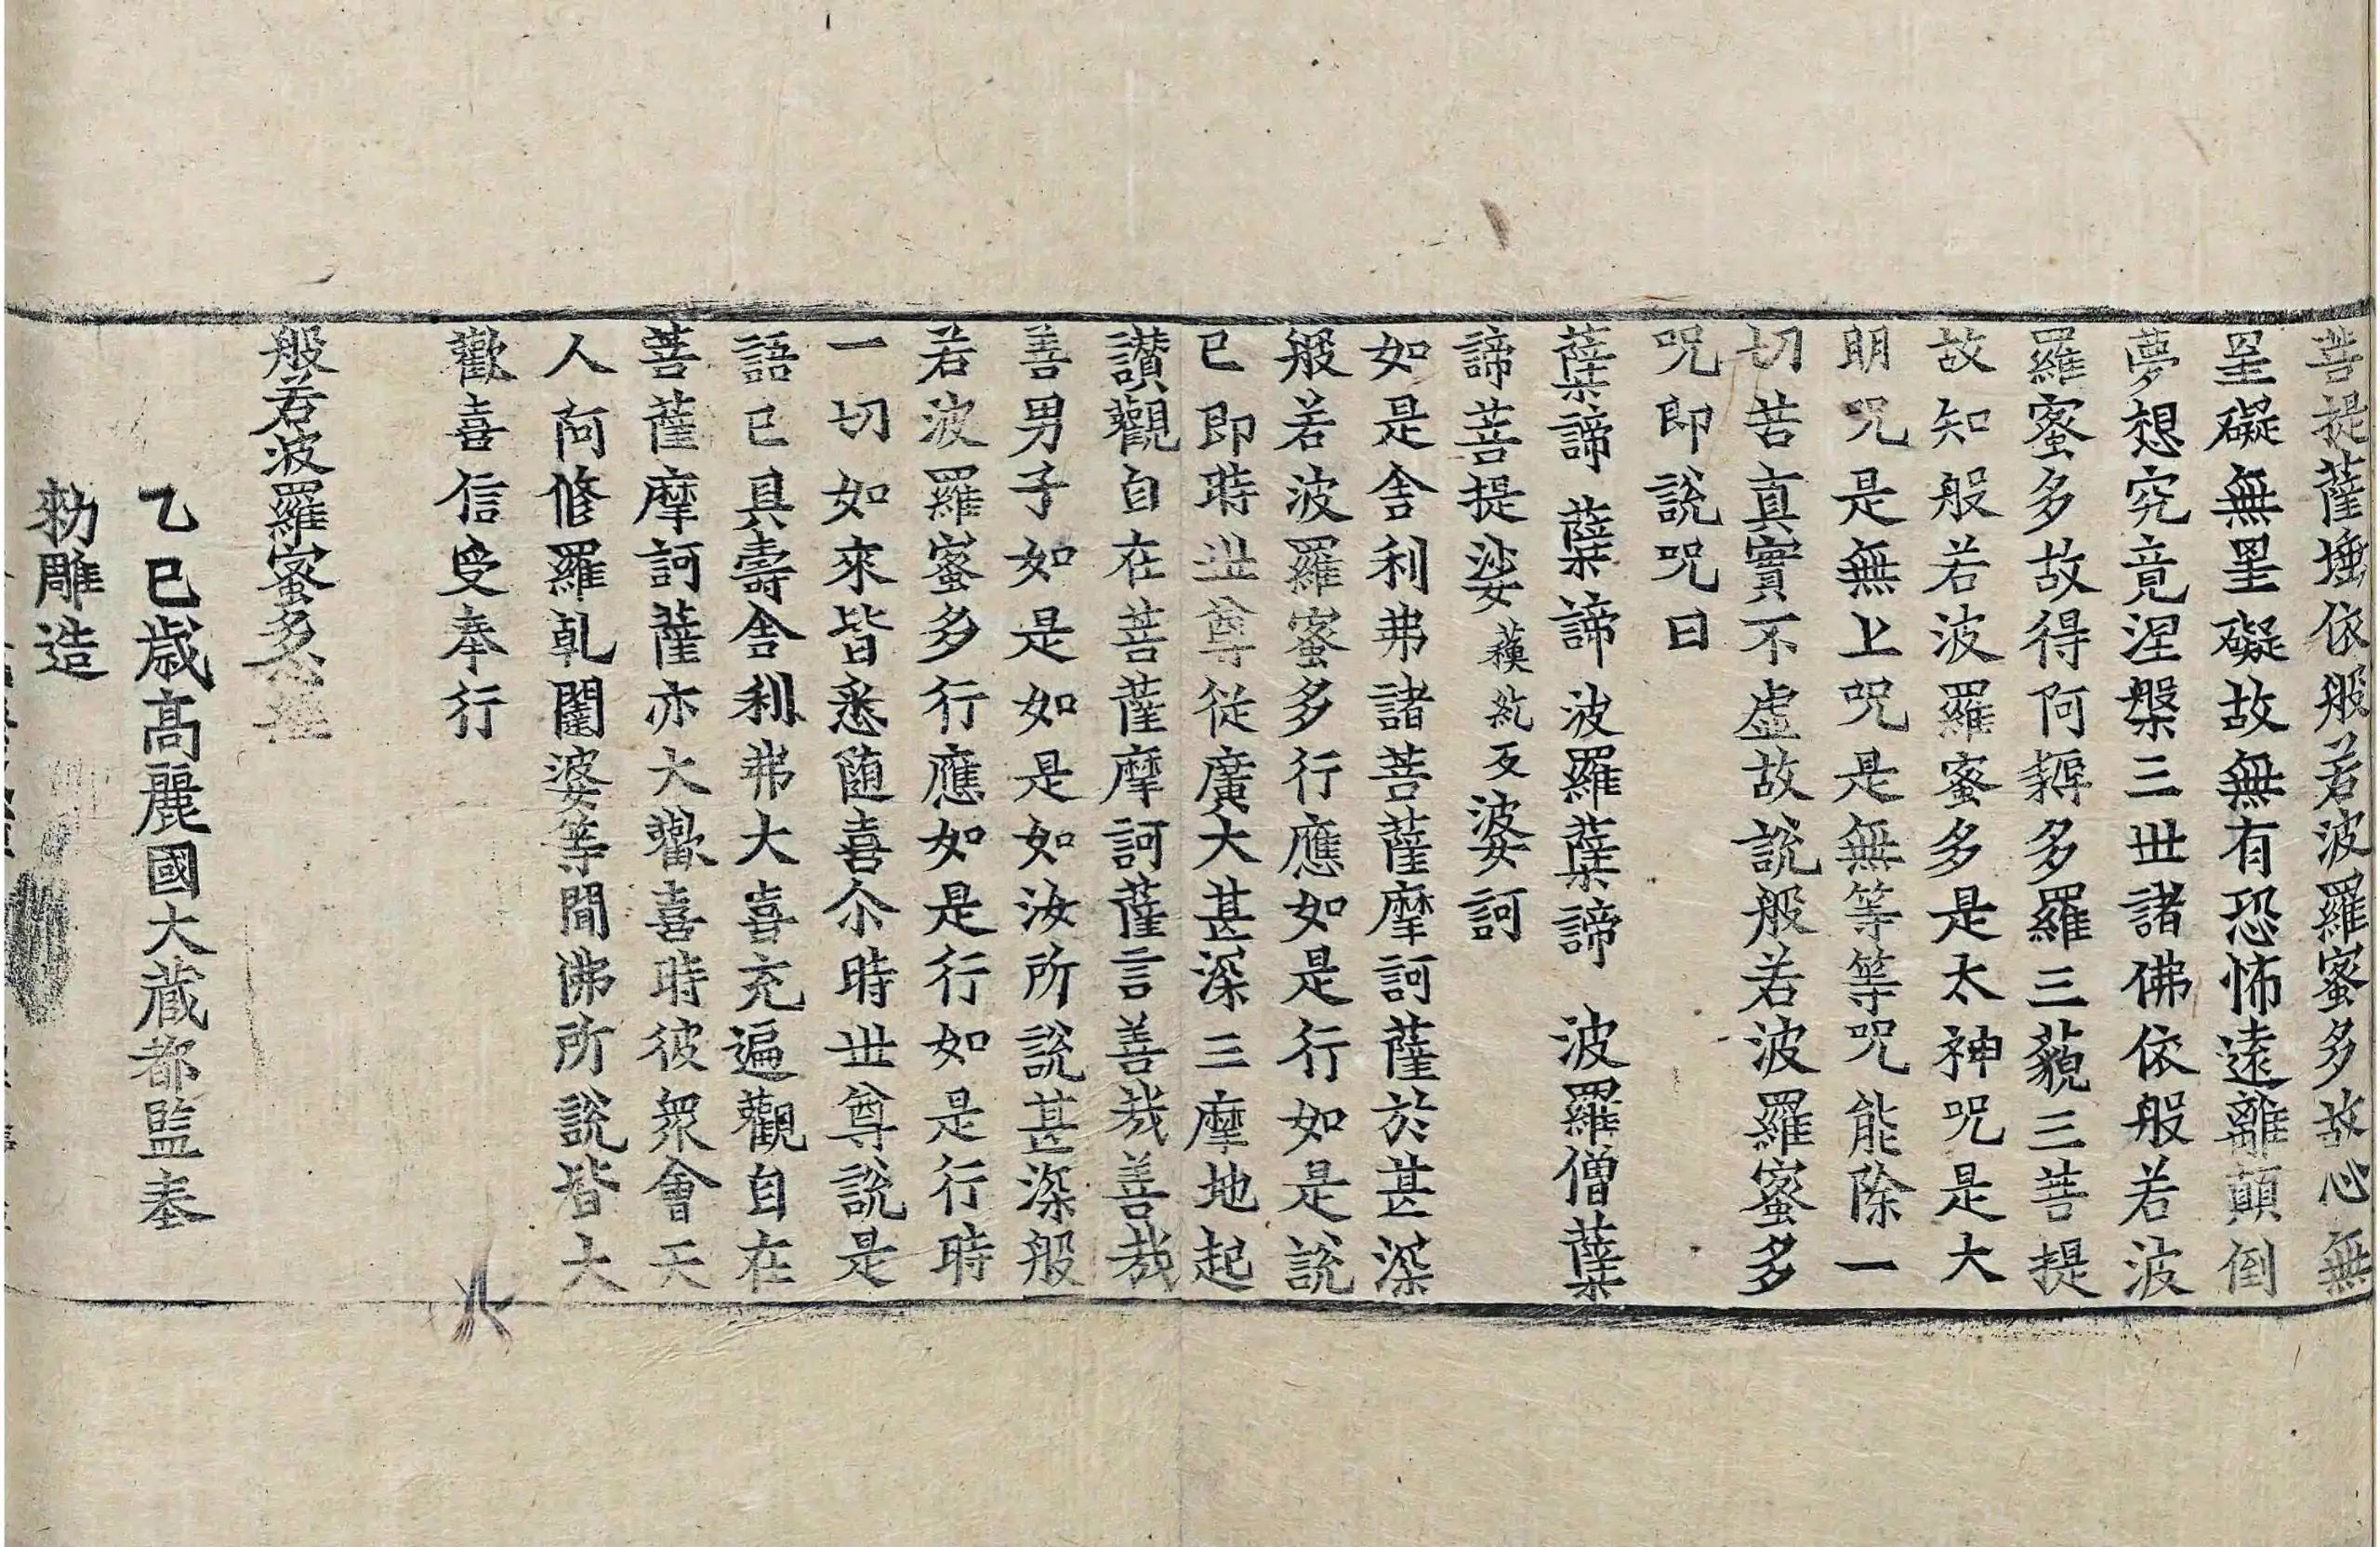 菩提薩埵依般若波羅蜜多故心無
罣礙無罣礙故無有恐怖遠離顛倒
夢想究竟涅槃三世諸佛依般若波
羅蜜多故得阿耨多羅三藐三菩提
故知般若波羅蜜多是大神呪是大
明呪是無上呪是無等等呪能除一
切苦真實不虛故說般若波羅蜜多
呪即說呪曰
蘖諦 蘖諦 波羅蘖諦 波羅僧蘖
諦菩提娑蘇紇反婆訶
如是舍利弗諸菩薩摩訶薩於甚深
般若波羅蜜多行應如是行如是說
已即時世尊從廣大甚深三摩地起
讃觀自在菩薩摩訶薩言善哉善哉
善男子如是如是如汝所說甚深般
若波羅蜜多行應如是行如是行時
一切如來皆悉隨喜尒時世尊說是
語已具壽舍利弗大喜充遍觀自在
菩薩摩訶薩亦大歡喜時彼衆會天
人阿修羅乹闥婆等聞佛所說皆大
歡喜信受奉行
般若波羅蜜多心經
乙巳歲高麗國大藏都監奉
勑雕造